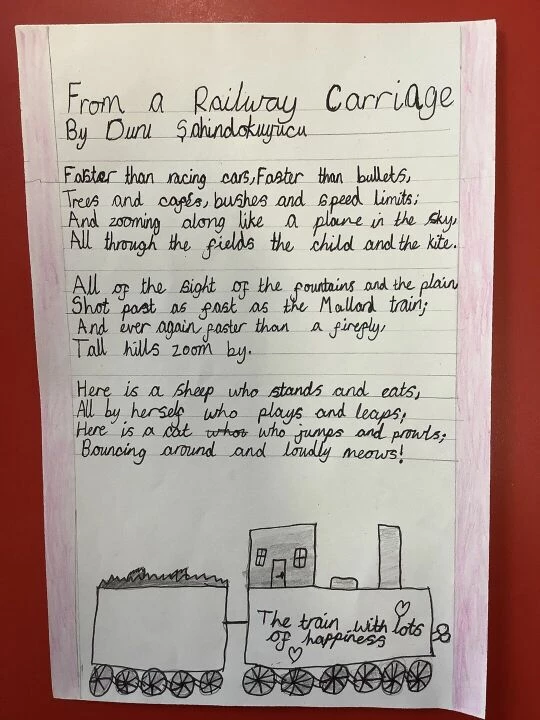 From a Railway Carriage
By Duru Şahindokuyucu
Faster than racing cars, Faster than bullets,
Trees and cages, bushes and speed limits;
And zooming along like a plane in the sky,
All through the fields the child and the kite.
All of the sight of the fountains and the plain
Shot past as fast as the Mallard train;
And ever again faster than a firefly,
Tall hills zoom by.
Here is a sheep who stands and eats,
All by herself who plays and leaps;
Here is a cat who jumps and prowls;
Bouncing around and loudly meows!
The train with lots
of happiness